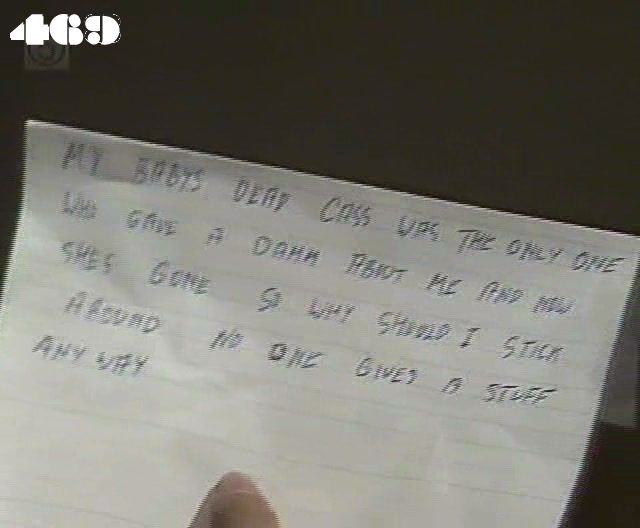 469
5
MY BABYS DEAD CASS WAS THE ONLY ONE
WHO GAVE A DAMM ABOUT ME AND NOW
SHES GONE SO WHY SHOULD I STICK
AROUND NO ONE GIVES A STUFF
ANY WAY